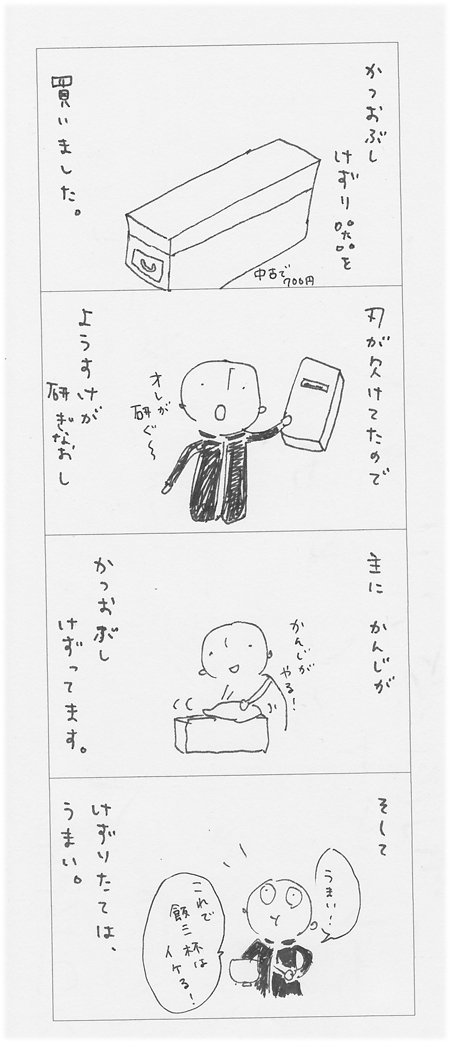 かつおぶし
けずり器を
買いました。
中古で
700円
刃が欠けてたので
オレが
研ぐ〜
ようすけが
研ぎなおし
主に かんじが
かんじが
やる!
かつおぶし
けずってます。
そして
うまい!
これで
飯三杯は
イケる!
けずりたては、
うまい。